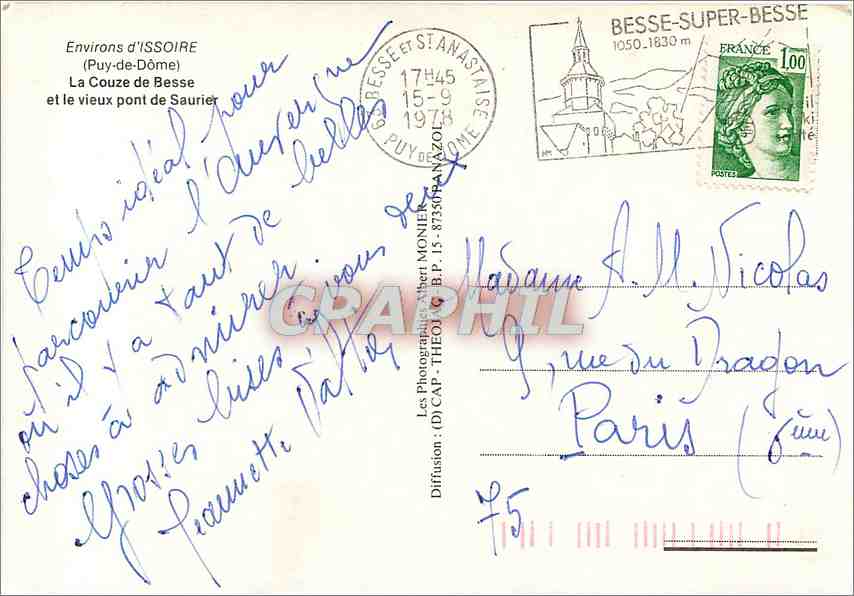 Environs d'ISSOIRE
(Puy-de-Dôme)
La Couze de Besse
et le vieux pont de Saurier
63 BESSE ET ST ANASTAISE
17H45
15-9
1978
PUY DE DOME
BESSE-SUPER-BESSE
1050-1830 m
FRANCE
1,00
POSTES
Temps idéal pour
parcourir l'Auvergne
où il y a tant de belles
choses à admirer.
Grosses bises à vous deux
Jeannette
Les Photographies Albert MONIER
Diffusion : (D) CAP - THEOJAC - B.P. 15 - 87350 PANAZOL
CPAPHIL
Madame A. M. Nicolas
9, rue du Dragon
Paris (6ème)
75